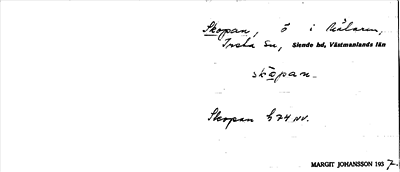 Skopan, ö i Mälaren,
Irsta sn, Siende hd, Västmanlands län
skǫpan_
Skopan h 74 NV.
MARGIT JOHANSSON 1937.